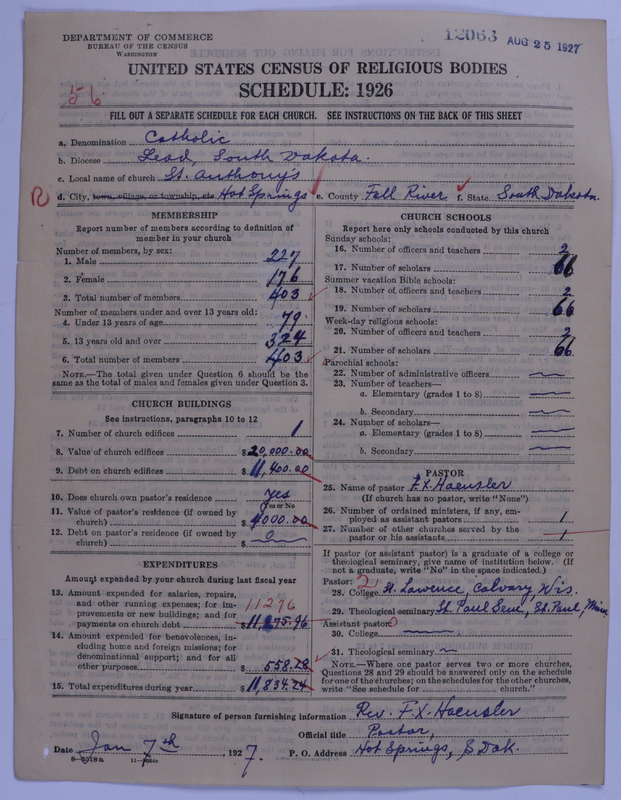 12063 AUG 25 1927
DEPARTMENT OF COMMERCE
BUREAU OF THE CENSUS
WASHINGTON
UNITED STATES CENSUS OF RELIGIOUS BODIES
SCHEDULE: 1926
56
FILL OUT A SEPARATE SCHEDULE FOR EACH CHURCH. SEE INSTRUCTIONS ON THE BACK OF THIS SHEET
a. Denomination Catholic
b. Diocese Lead, South Dakota.
c. Local name of church St. Anthony's
R d. City, town, village, or township, etc. Hot Springs e. County Fall River f. State South Dakota.
MEMBERSHIP
Report number of members according to definition of
member in your church
Number of members, by sex:
1. Male 227
2. Female 176
3. Total number of members 403
Number of members under and over 13 years old:
4. Under 13 years of age 79
5. 13 years old and over 324
6. Total number of members 403
NOTE.—The total given under Question 6 should be the
same as the total of males and females given under Question 3.
CHURCH BUILDINGS
See instructions, paragraphs 10 to 12
7. Number of church edifices 1
8. Value of church edifices $20,000.00
9. Debt on church edifices $11,400.00
10. Does church own pastor's residence yes
Yes or No
11. Value of pastor's residence (if owned by
church) $4000.00
12. Debt on pastor's residence (if owned by
church) $
EXPENDITURES
Amount expended by your church during last fiscal year
13. Amount expended for salaries, repairs,
and other running expenses; for im-
provements or new buildings; and for
11276
payments on church debt $11,275.96
14. Amount expended for benevolences, in-
cluding home and foreign missions; for
denominational support; and for all
other purposes $558.28
15. Total expenditures during year $11,834.24
CHURCH SCHOOLS
Report here only schools conducted by this church
Sunday schools:
16. Number of officers and teachers 2
17. Number of scholars 66
Summer vacation Bible schools:
18. Number of officers and teachers 2
19. Number of scholars 66
Week-day religious schools:
20. Number of officers and teachers 2
21. Number of scholars 66
Parochial schools:
22. Number of administrative officers
23. Number of teachers—
a. Elementary (grades 1 to 8)
b. Secondary
24. Number of scholars—
a. Elementary (grades 1 to 8)
b. Secondary
PASTOR
25. Name of pastor F.X. Haensler
(If church has no pastor, write "None")
26. Number of ordained ministers, if any, em-
ployed as assistant pastors 1
27. Number of other churches served by the
pastor or his assistants 1
If pastor (or assistant pastor) is a graduate of a college or
theological seminary, give name of institution below. (If
not a graduate, write "No" in the space indicated.)
Pastor: 2
28. College St. Lawrence, Calvary, Wis.
29. Theological seminary St. Paul Sem., St. Paul, Minn.
Assistant pastor: 0
30. College
31. Theological seminary
NOTE.—Where one pastor serves two or more churches,
Questions 28 and 29 should be answered only on the schedule
for one of the churches; on the schedules for the other churches,
write "See schedule for church."
Signature of person furnishing information Rev. F.X. Haensler
Official title Pastor,
Date Jan 7th, 1927. P. O. Address Hot Springs, S. Dak.